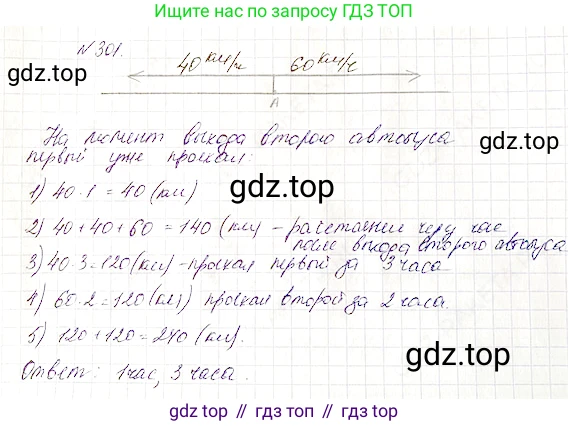 Ищите нас по запросу ГДЗ ТОП
№ 301.
40 км/ч 60 км/ч
gdz.top
gdz.top
A
На момент выхода второго автобуса
первый уже проехал:
1) 40 · 1 = 40 (км)
gdz.top
gdz.top
2) 40 + 40 + 60 = 140 (км) - расстояние через час
после выхода второго автобуса
3) 40 · 3 = 120 (км) - проехал первый за 3 часа
4) 60 · 2 = 120 (км) проехал второй за 2 часа.
5) 120 + 120 = 240 (км).
gdz.top
Ответ: 1 час, 3 часа.
gdz.top
gdz.top // гдз топ // gdz.top